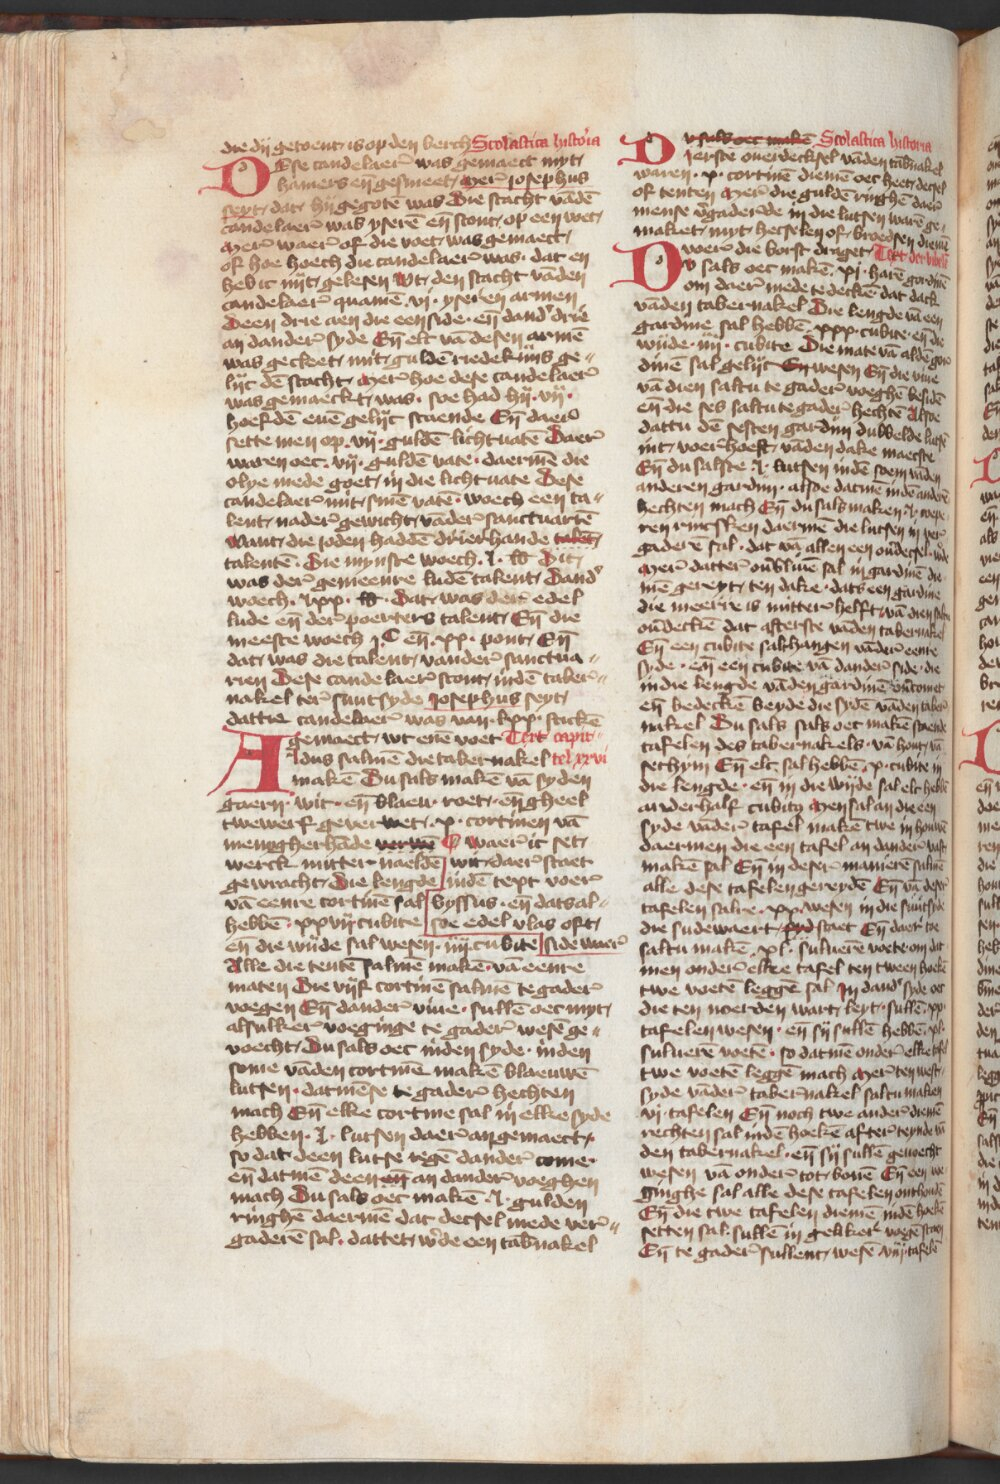 die dij getoent is op den berch Scolastica historia
Dese candelaer was gemaect myt
hamers eñ gesmeet, Mer Josephus
seyt, dat hij gegotē was Die stacht vādē
candelaer was yserē eñ stont op een voet,
Mer waer of die voet was gemaect,
of hoe hoech die candelaer was, dat en
heb ic nijt gelesen Vt den stacht vāden
candelaer quamē vi yseren armen
Deen drie aen die een side eñ dand' drie
an dander syde Eñ elc vā desen armē
was
lijc dē stacht, Mer hoe dese candelaer
was gemaeckt, was soe had hij vij
hoefdē euē gelijc staende Eñ daer
sette men op vij guldē lichtuatē Daer
waren oec vij guldē vate daermē die
olye mede goet in die lichtuate Dese
candelaer mit sinē vatē woech een ta-
lent, nader gewicht vāder sanctuariē
Want die joden haddē drierhande talēt
talentē Die mynste woech l lb Dit
was der gemeenre ludē talent, Dand'
woech lxx lb Dat was der edel
lude eñ der poerters talent, Eñ die
meeste woech jC eñ xx pont, Eñ
dat was die talent vander sanctua-
rien Dese candelaer stont indē taber-
nakel ter suutsyde Josephus seyt,
dattie candelaer was van lxx stickē
gemaect, wt enē voet Text capit-
Aldus salmē die tabernakel tel xxvi
makē Du sals makē vā syden
gaern wit eñ blaeu roet, eñ gheel
twewerf geverwet, x cortinen vā
menigherhāde verwē waer ic set,
werck mitter naeldē wit, daer staet
gewracht, Die lengde indē text voer
vā eenre cortinē sal byssus eñ dats al-
hebbē xxviij cubite soe edel vlas oft,
eñ die wijde sal wesen iiij cubite side waer
Alle die tentē salmē makē vā eenre
maten Die vijf cortinē salmē te gader
voegen Eñ dander viue sullē oec myt
alsulker voeginge te gader wesē ge-
voecht, Du sals oec inden syde inden
some vāden cortinē makē blaeuwē
lutsen datmēse te gader hechten
mach Eñ elke cortine sal in elke syde
hebben l lutsen daer an gemaect,
so dat deen lutse tegē dander come
eñ datmē deen eñ an dander voeghen
mach Du sals oec makē l gulden
ringhē daermē dat decsel mede ver-
gaderē sal dattet w'de een tab'nakel
Du sals oec makē Scolastica historia
Jerste ouerdecksel vādē tab'nakel
waren x cortinē diemē oec heet, decsel
of tenten Mer die guldē ringhē daer
mense v'gader'de in die lutsen warē ge-
maket, myt hetselen of broedsen diemē
voer die borst draget, Text der bibelē
Du sals oec makē xi harē gordinē
om daer mede te deckē dat dack
vāden tabernakel Die lengde vā een
gardine sal hebbē xxx cubite eñ die
wijde iiij cubite Die mate vā aldē gor-
dinē sal gelijc wesen Eñ die viue
vā dien saltu te gader voeghē besidē
eñ die ses saltu te gader hechtē Alsoe
dattu dē sesten gardijn dubbelde
int voerhoeft vāden dake maecste
Eñ du salste l lutsen indē soem vāden
anderen gardijn alsoe datmē indē anderē
hechten mach Eñ du sals maken l
ren rincsken daermē die lutsen in ver-
gaderē sal dat vā allen een ou'decsel
Mer datter ou'bliuē sal in gardinē die
mē gereyt, ten dake dats een gardine
die meerre is mitter helft, vā dien saltu
ou'deckē dat afterste vāden tabernakel
Eñ een cubite sal hangen vāder eenre
syde eñ een cubite vā dander syde die
in die lengde vāden gardinē
eñ bedeckē beyde die sydē vāden taber-
nakel Du sals sals oec makē staende
tafelen des tabernakels vā hout vā
sethym Eñ elc sal hebbē x cubite in
die lengde eñ in die wijde sal elc hebbē
anderhalf cubitū Men sal an die een
syde vāder tafel makē twe in houwē
daermen die een tafel an dander vast
makē sal Eñ in deser manierē salmē
alle dese tafelen gereydē Eñ vā deser
tafelen sulre xx wesen in die suutsyde
die sudewaert, syd staet Eñ daer toe
saltu makē xl suluerē voete om dat
men onder elke tafel ten tween hoekē
twe voetē leggē sal In dand' syde oec
die ten noerden wart, leyt, sullē xx
tafelen wesen eñ sij sullē hebbē xl
suluerē voetē so datmē onder elke tafel
twe voetē leggē mach Mer ten west,
syde vāder tabernakel saltu maken
vi tafelen Eñ noch twe ander diemē
rechten sal indē hoekē after teynde vā
den tabernakel eñ sij sullē geuoecht
wesen vā onder tot bouē Eñ een
ginghe sal alle dese tafelen onthoudē
Eñ die twe tafelen diemē indē hoekē
setten sal sullē in geliker wegē staen
Eñ te gader sullent, wesē viij tafelē